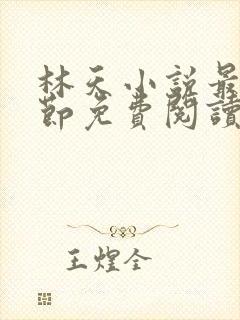 林天小説最
節免費閱讀
王煌全